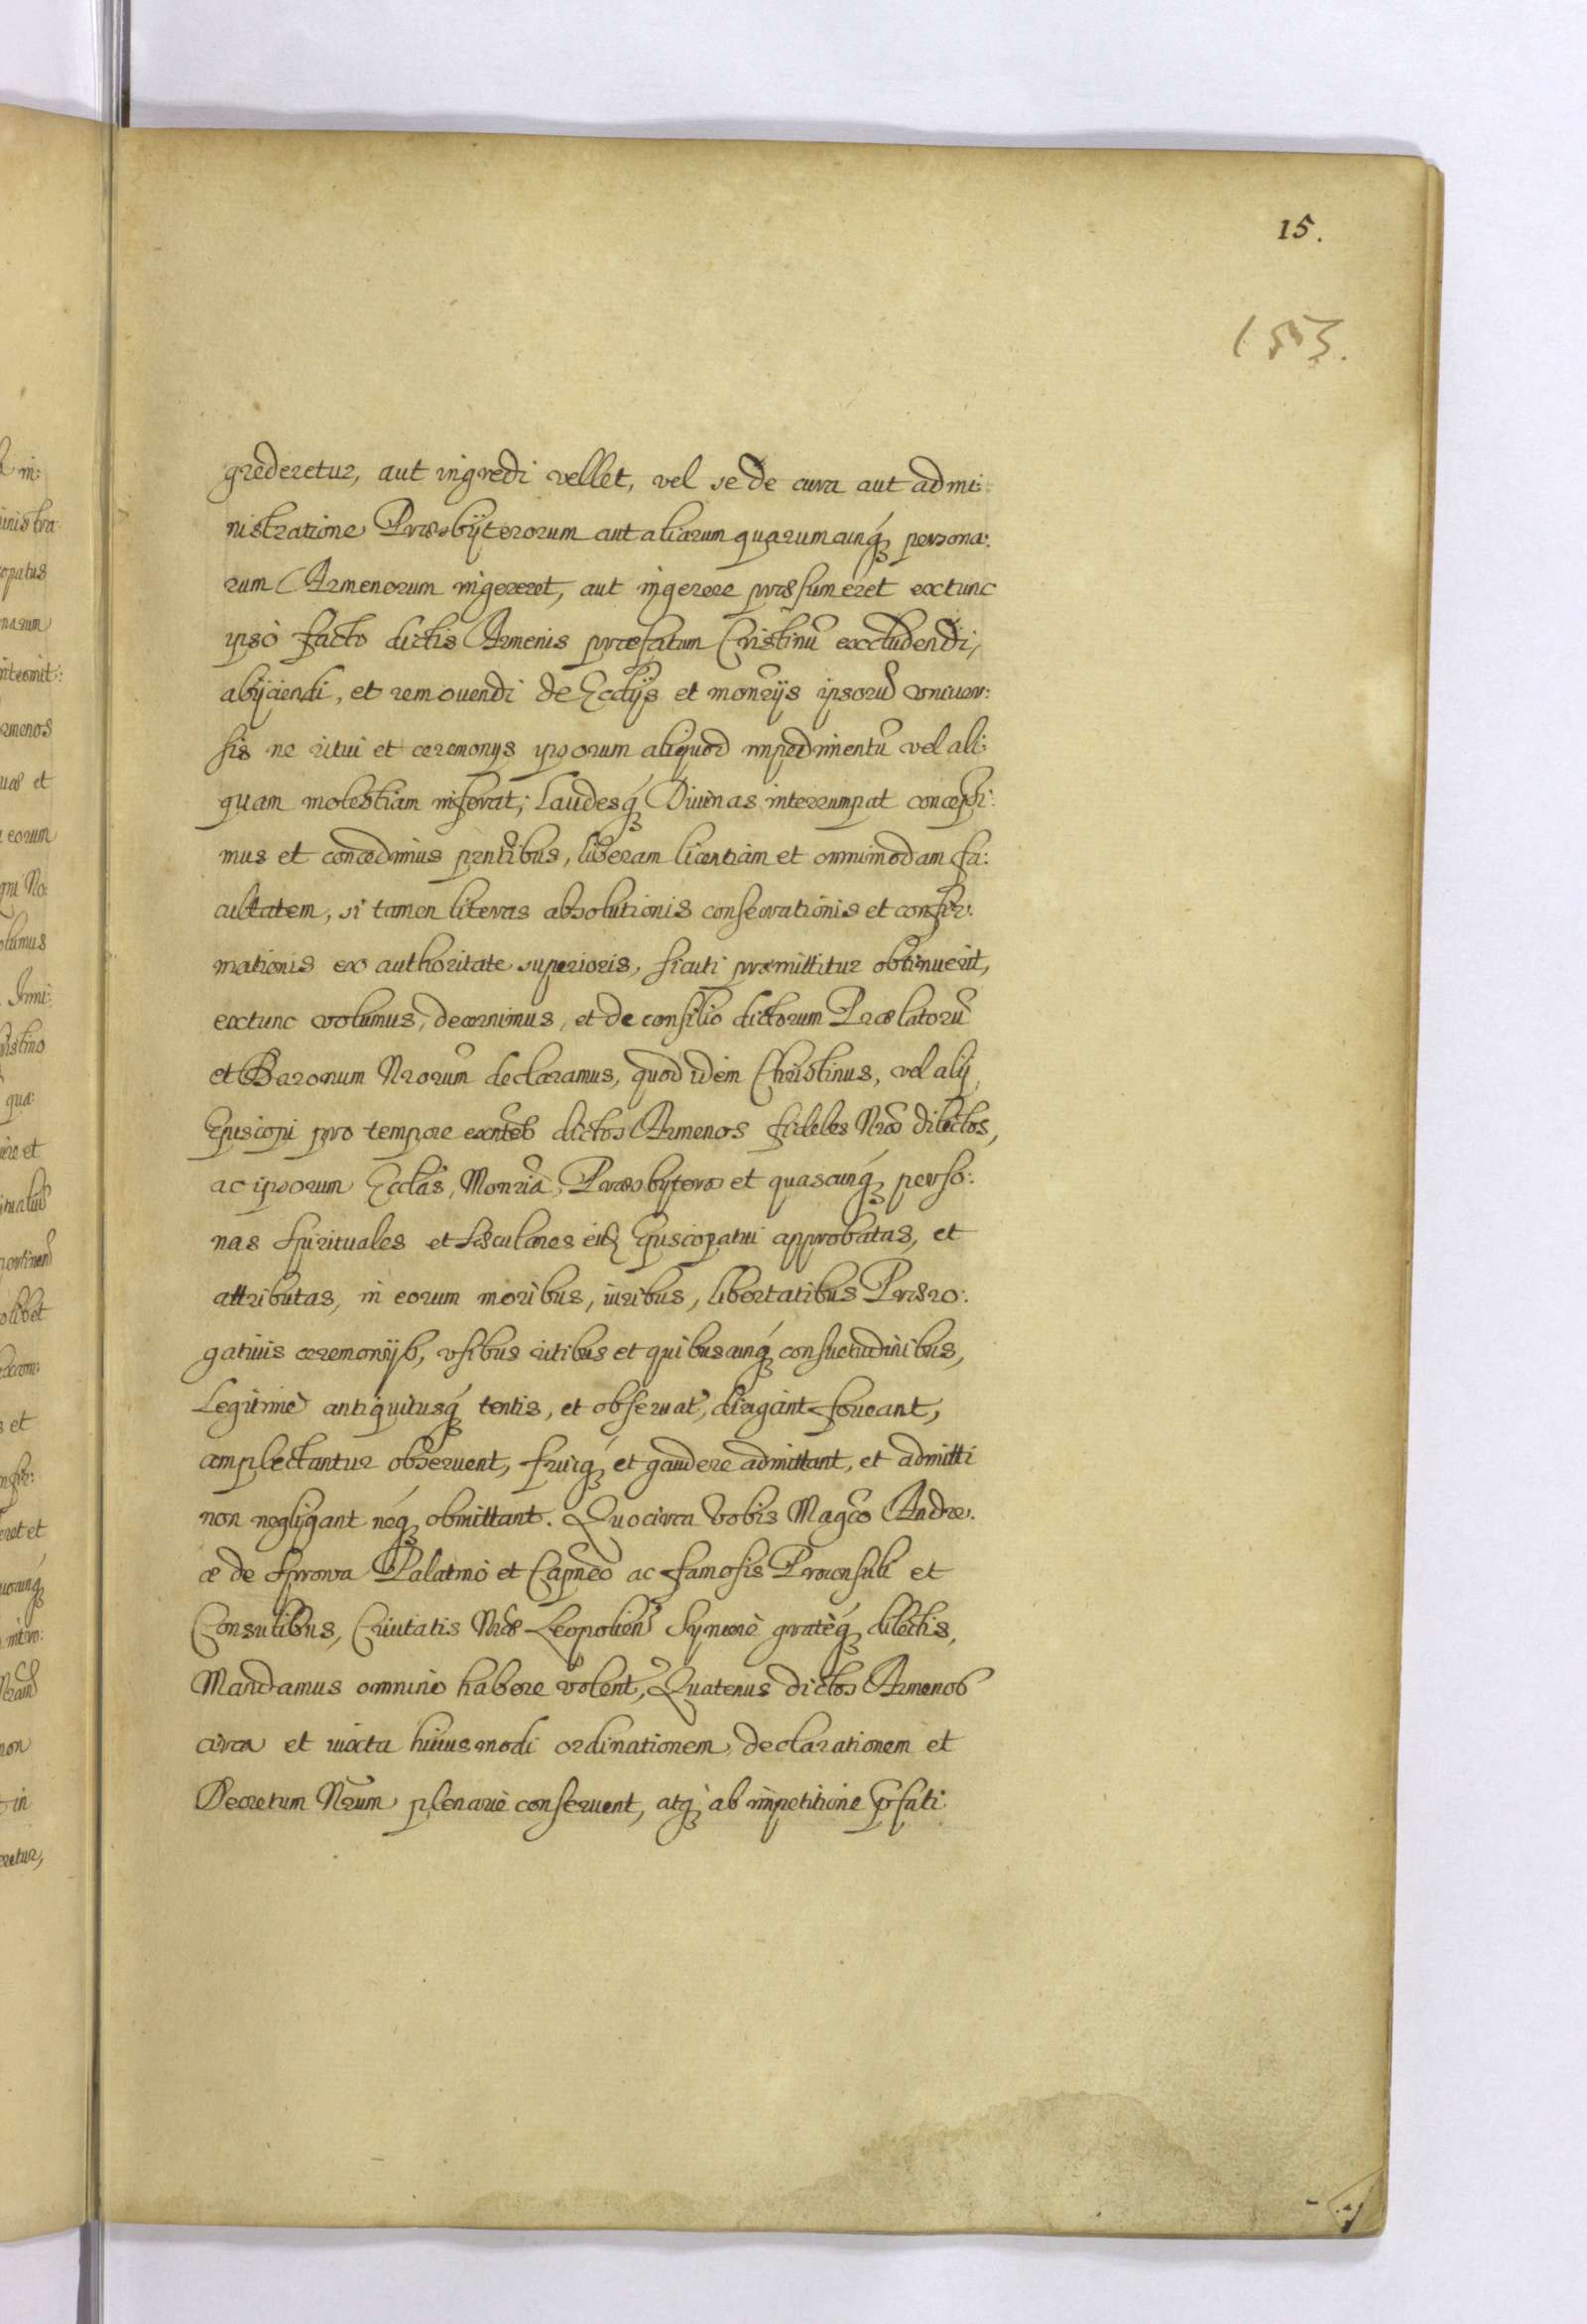 15.
1553.
grederetur, aut ingredi vellet, vel se de cura aut admi:
nistratione Præsbÿterorum aut aliarum quarumcunq́ persona:
rum Armenorum ingereret, aut ingerere præsumeret extunc
ipsò facto dictis Armenis præfatum Cristinũ excludendi,
abÿciendi, et remouendi de Ecclijs et monrijs ipsorũ vniuer:
sis ne ritui et ceremonijs ipsorum aliquod impedimentũ vel ali:
quam molestiam inferat, Laudesq́ Diuinas interrumpat concessi:
mus et concedimus pñtibus, liberam licentiam et omnimodam fa:
cultatem, si tamen literas absolutionis conseruationis et confir:
mationis ex authoritate superioris, sicuti præmittitur obtinuerit,
extunc volumus, decernimus, et de consilio dictorum Prælatorũ
et Baronum Nrorum declaramus, quod idem Christinus, vel alÿ
Episcopi pro tempore exñtes dictos Armenos fideles Nros dilectos,
ac ipsorum Ecclãs, Monria, Præsbyteros et quascunq́ perso:
nas spirituales et sæculares Episcopatui approbatas, et
attributas, in eorum moribus, iuribus, libertatibus Præro:
gatiuis ceremonÿs, vsibus ritibus et quibuscunq́ consuetudinibus,
Legitimè antiquitusq́ tentis, et obseruat, dirigant foueant,
amplectantur obseruent, fruiq́ et gaudere admittant, et admitti
non negligant neq́ obmittant. Quocirca Vobis Magco Andre:
æ de Sprowa Palatinò et Capneo ac famosis Proconsuli et
Consulibus, Ciuitatis Nræ Leopolien Syncerè gratèq́ dilectis,
Mandamus omninò habere volent, Quatenus dictos Armenos
circa et iuxta huiusmodi ordinationem, declarationem et
Decretum Nrum plenariè conseruent, atq́ ab impetitione p̃fati